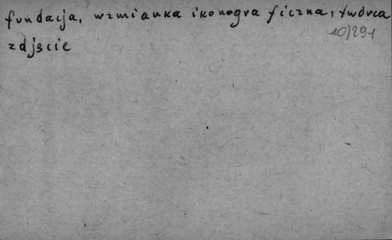 fundacja, wzmianka ikonograficzna, twórca
10/291
zdjęcie